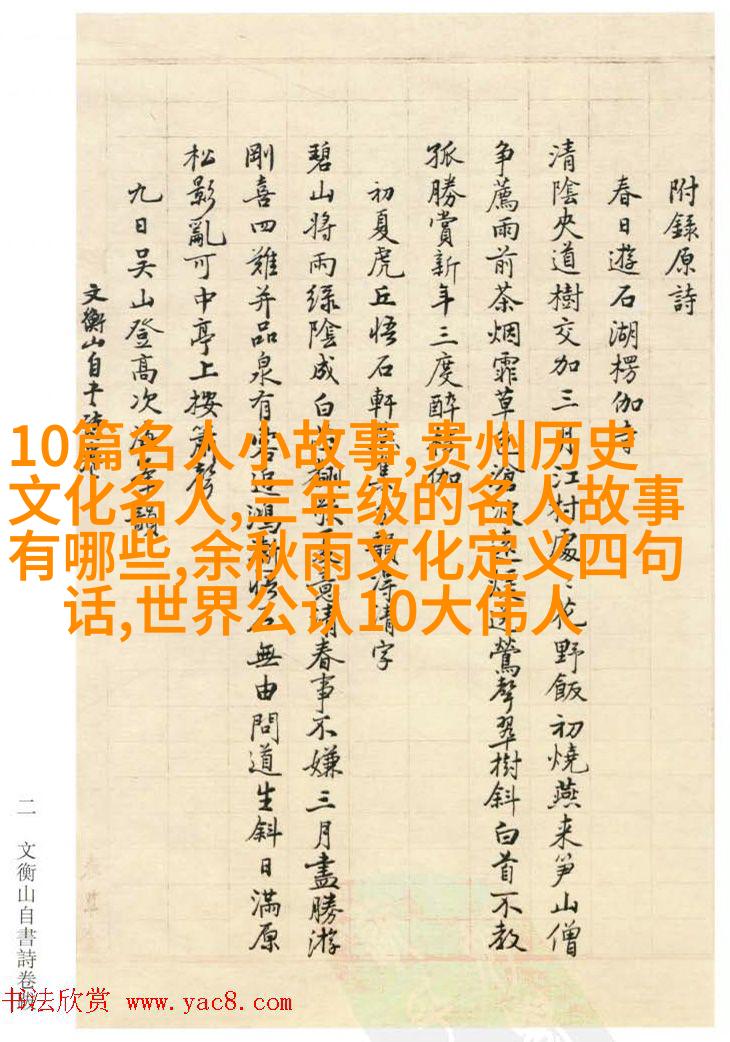 附錄原詩
春日遊石湖楞伽寺
清陰夾道樹交加三月江村處〻花野飯初燒燕来笋山僧
争薦雨前茶烟霏草色滄鶯聲翠樹斜白首不教
孤勝賞新年三度醉楞伽
初夏虎丘悟石軒集得清字
碧山將雨綠陰成白清春事不嫌三月盡勝游
剛喜四難并品泉有客追鴻漸悟石無由問道生斜日滿原
松影亂可中亭上按簫聲
九日吳山登高次
文衡山自書詩
二 文衡山自書詩卷跋
10篇名人小故事,贵州历史
文化名人,三年级的名人故事
有哪些,余秋雨文化定义四句
话,世界公认10大伟人
书法欣赏 www.yac8.com